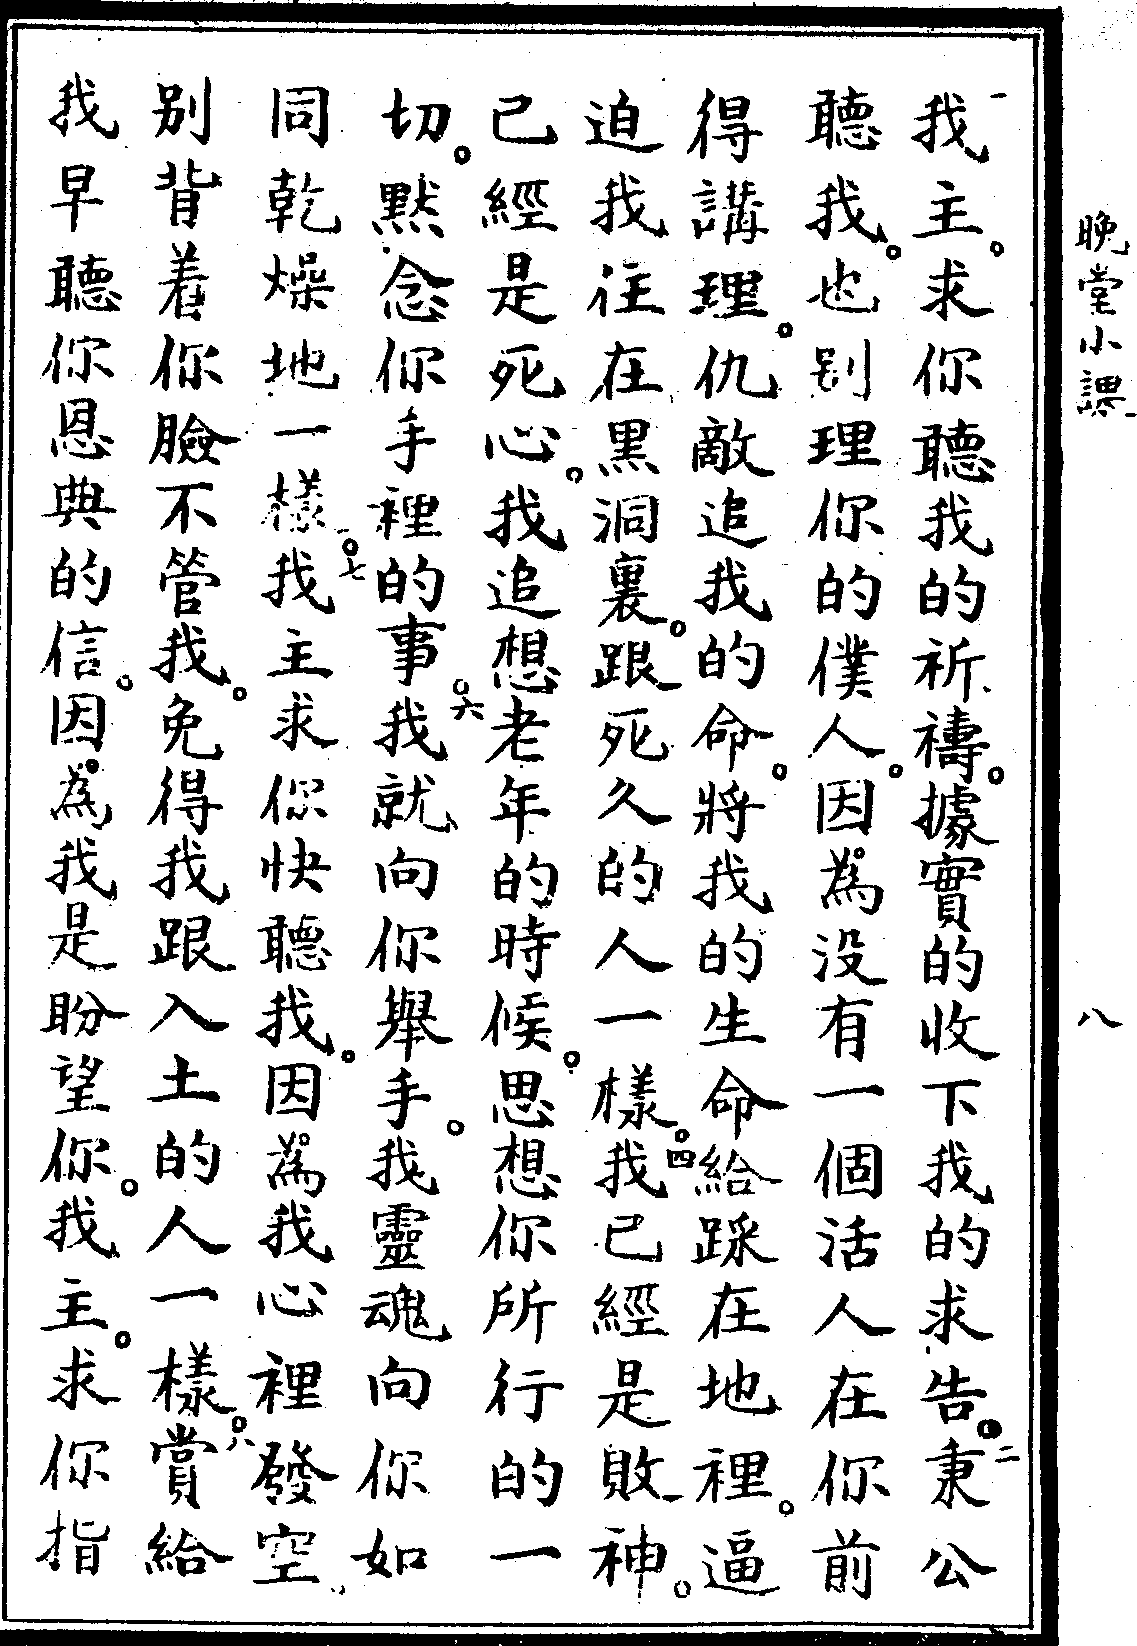 晚堂小課
八
一我主。求你聽我的祈禱。據實的收下我的求告。二秉公
聽我。也别理你的僕人。因為没有一個活人在你前
得講理。仇敵追我的命。將我的生命給踩在地裡。逼
迫我往在黑洞裏。跟死久的人一樣。四我已經是敗神。
已經是死心。我追想老年的時候。思想你所行的一
切。默念你手裡的事。六我就向你舉手。我靈魂向你如
同乾燥地一樣。七我主求你快聽我。因為我心裡發空。
别背着你臉不管我。免得我跟入土的人一樣。八賞給
我早聽你恩典的信。因為我是盼望你。我主。求你指